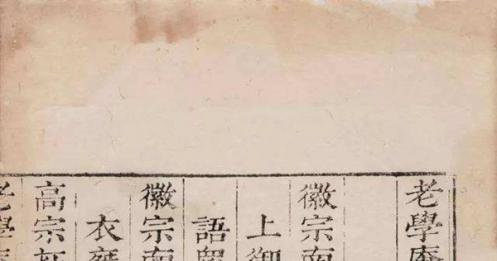 老學庵
徽宗南
上御
語
徽宗南
衣
高宗
老學